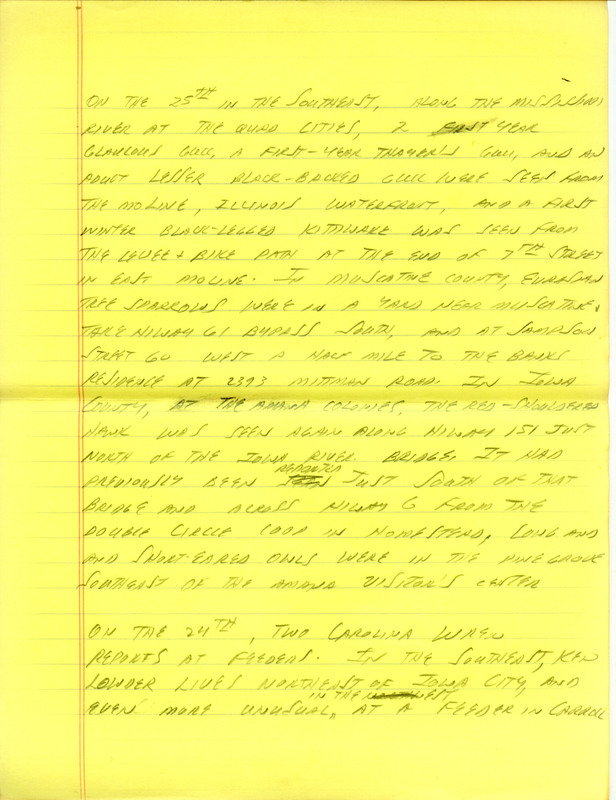 ON THE 25TH IN THE SOUTHEAST, ALONG THE MISSISSIPPI
RIVER AT THE QUAD CITIES, 2 FIRST YEAR
GLAUCOUS GULL, A FIRST-YEAR THAYER'S GULL, AND AN
ADULT LESSER BLACK-BACKED GULL WERE SEEN FROM
THE MOLINE, ILLINOIS WATERFRONT, AND A FIRST
WINTER BLACK-LEGGED KITTIWAKE WAS SEEN FROM
THE LEVEE + BIKE PATH AT THE END OF 7TH STREET
IN EAST MOLINE. IN MUSCATINE COUNTY, EURASIAN
TREE SPARROWS WERE IN A YARD NEAR MUSCATINE.
TAKE HIWAY 61 BYPASS SOUTH, AND AT SAMPSON
STREET GO WEST A HALF MILE TO THE BANKS
RESIDENCE AT 2393 MITTMAN ROAD. IN IOWA
COUNTY, AT THE AMANA COLONIES, THE RED-SHOULDERED
HAWK WAS SEEN AGAIN ALONG HIWAY 151 JUST
NORTH OF THE IOWA RIVER BRIDGE. IT HAD
PREVIOUSLY BEEN REPORTED JUST SOUTH OF THAT
BRIDGE AND ACROSS HIWAY 6 FROM THE
DOUBLE CIRCLE COOP IN HOMESTEAD. LONG AND
AND SHORT-EARED OWLS WERE IN THE PINE GROVE
SOUTHEAST OF THE AMANA VISITOR'S CENTER
ON THE 24TH, TWO CAROLINA WREN
REPORTS AT FEEDERS. IN THE SOUTHEAST, KEN
LOWDER LIVES NORTHEAST OF IOWA CITY, AND
EVEN MORE UNUSUAL, IN THE NORTHWEST, AT A FEEDER IN CARROLL